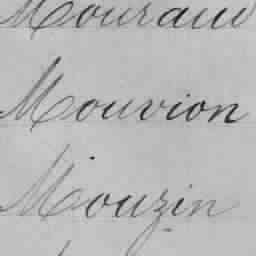 Mouraud
Mouvion
Mouzin